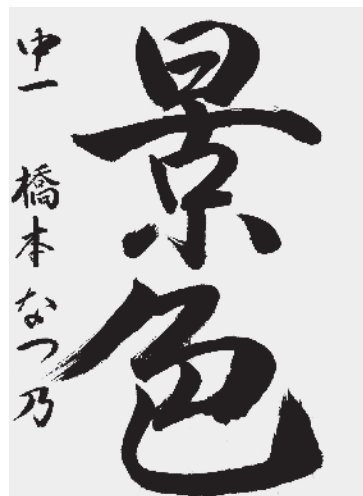 景色
中一 橋本なつ乃